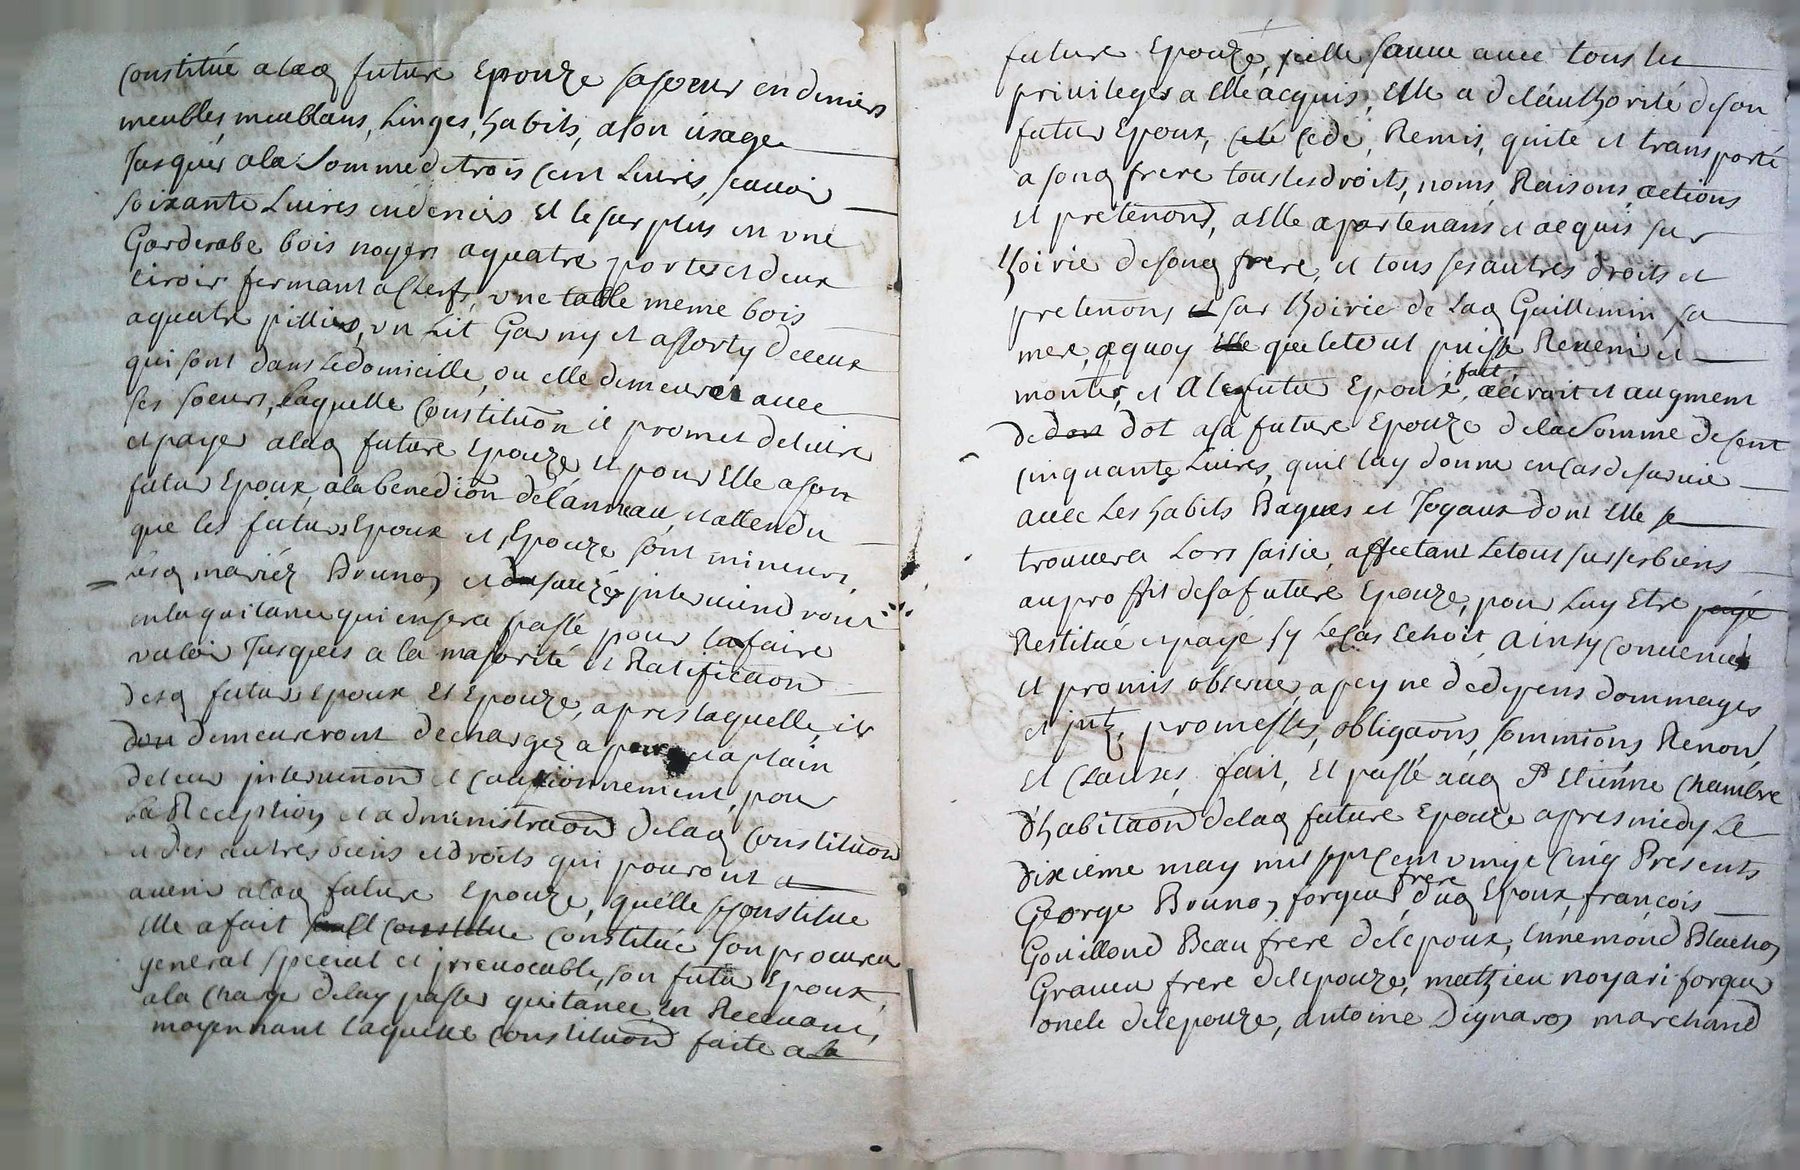 constitué a lad future Epouze sa soeur en deniers
meubles, meublans, Linges, habits, a son usage
Jusques a la somme de trois cent Livres, scauoir
soixante Liures en deniers Et le sur plus en une
Garderobe bois noyer a quatre portes et deux
tiroirs fermant a clefs, une table meme bois
a quatre pilliers, un Lit Garny et assorty de ceux
qui sont dans le domicille, ou elle demeure auec
ses soeurs, Laquelle Constituon il promet deluire
et payer a lad future Epouze et pour Elle a son
futur Epoux, a la benedion de l'anneau, et attendu
que les futurs Epoux et Epouze sont mineurs,
lesd mariez Brunos et interuiendront
en la quitance qui en sera passé pour la faire
ualoir Jusques a la majorité et Ratification
desd futurs epoux et Epouze, apres laquelle, ils
demeureront dechargez a pur et a plain
de leur interuenon et cautionnement, pour
La Reception et administraon delad Constituon
et des autres biens et droits qui pouront
auenir a lad future Epouze, quelle se constitue
Elle a fait constitue constitué son procureur
general special et irreuocable, son futur Epoux,
a la charge deluy passer quitance en Receuant,
moyennant laquelle constituon faite a la
future Epouze, elle sauue auec tous les
priuileges a elle acquis, Elle a de l'authorité de son
futur Epoux, cedé, Remis, quite et transporté
a sond frere tous les droits, noms, Raisons, actions
et pretenons, a Elle apartenans et acquis sur
l'hoirie de sond frere, et tous ses autres droits et
pretenons sur l'hoirie de lad Guillimin sa
mere, a quoy que le tout puisse Reuenir et
monter, et a led futur Epoux, fait accroit et augment
de dot a sa future Epouze de la somme de cent
cinquante Liures, qu'il luy donne en cas de suruie
auec Les habits Bagues et Joyaux dont Elle se
trouuera Lors saisie, affectant Le tout sur ses biens
au proffit de sa future Epouze, pour Luy Etre payé
Restitué et payé sy Le cas echoit, Ainsy Conuenu
et promis obseruer a peyne de depens dommages
et intz, promesses, obligaons, soumions, Renon,
Et clauses, fait, Et passé aud St Etienne Chambre
d'habitaon delad future Epouze apres midy Le
dixieme may mil sept cent vingt cinq Presents
George Brunos, forgeur frere dud Epoux, françois
Gouillond Beau frere de lepoux, Ennemond Blachon
Graueur frere de lepouze, mathieu noyari forgeur
oncle de lepouze, antoine Dignaros marchand